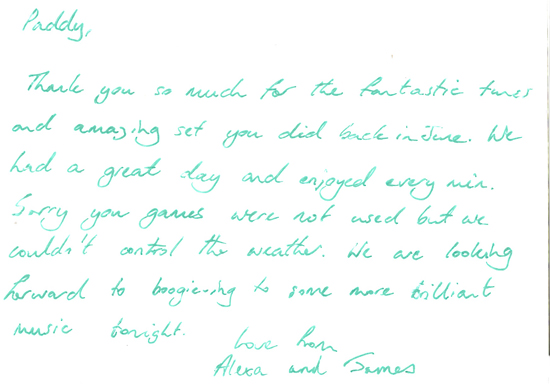 Paddy,
Thank you so much for the fantastic tunes
and amazing set you did back in June. We
had a great day and enjoyed every min.
Sorry you games were not used but we
couldn't control the weather. We are looking
forward to boogie-ing to some more brilliant
music tonight.
Love from
Alexa and James